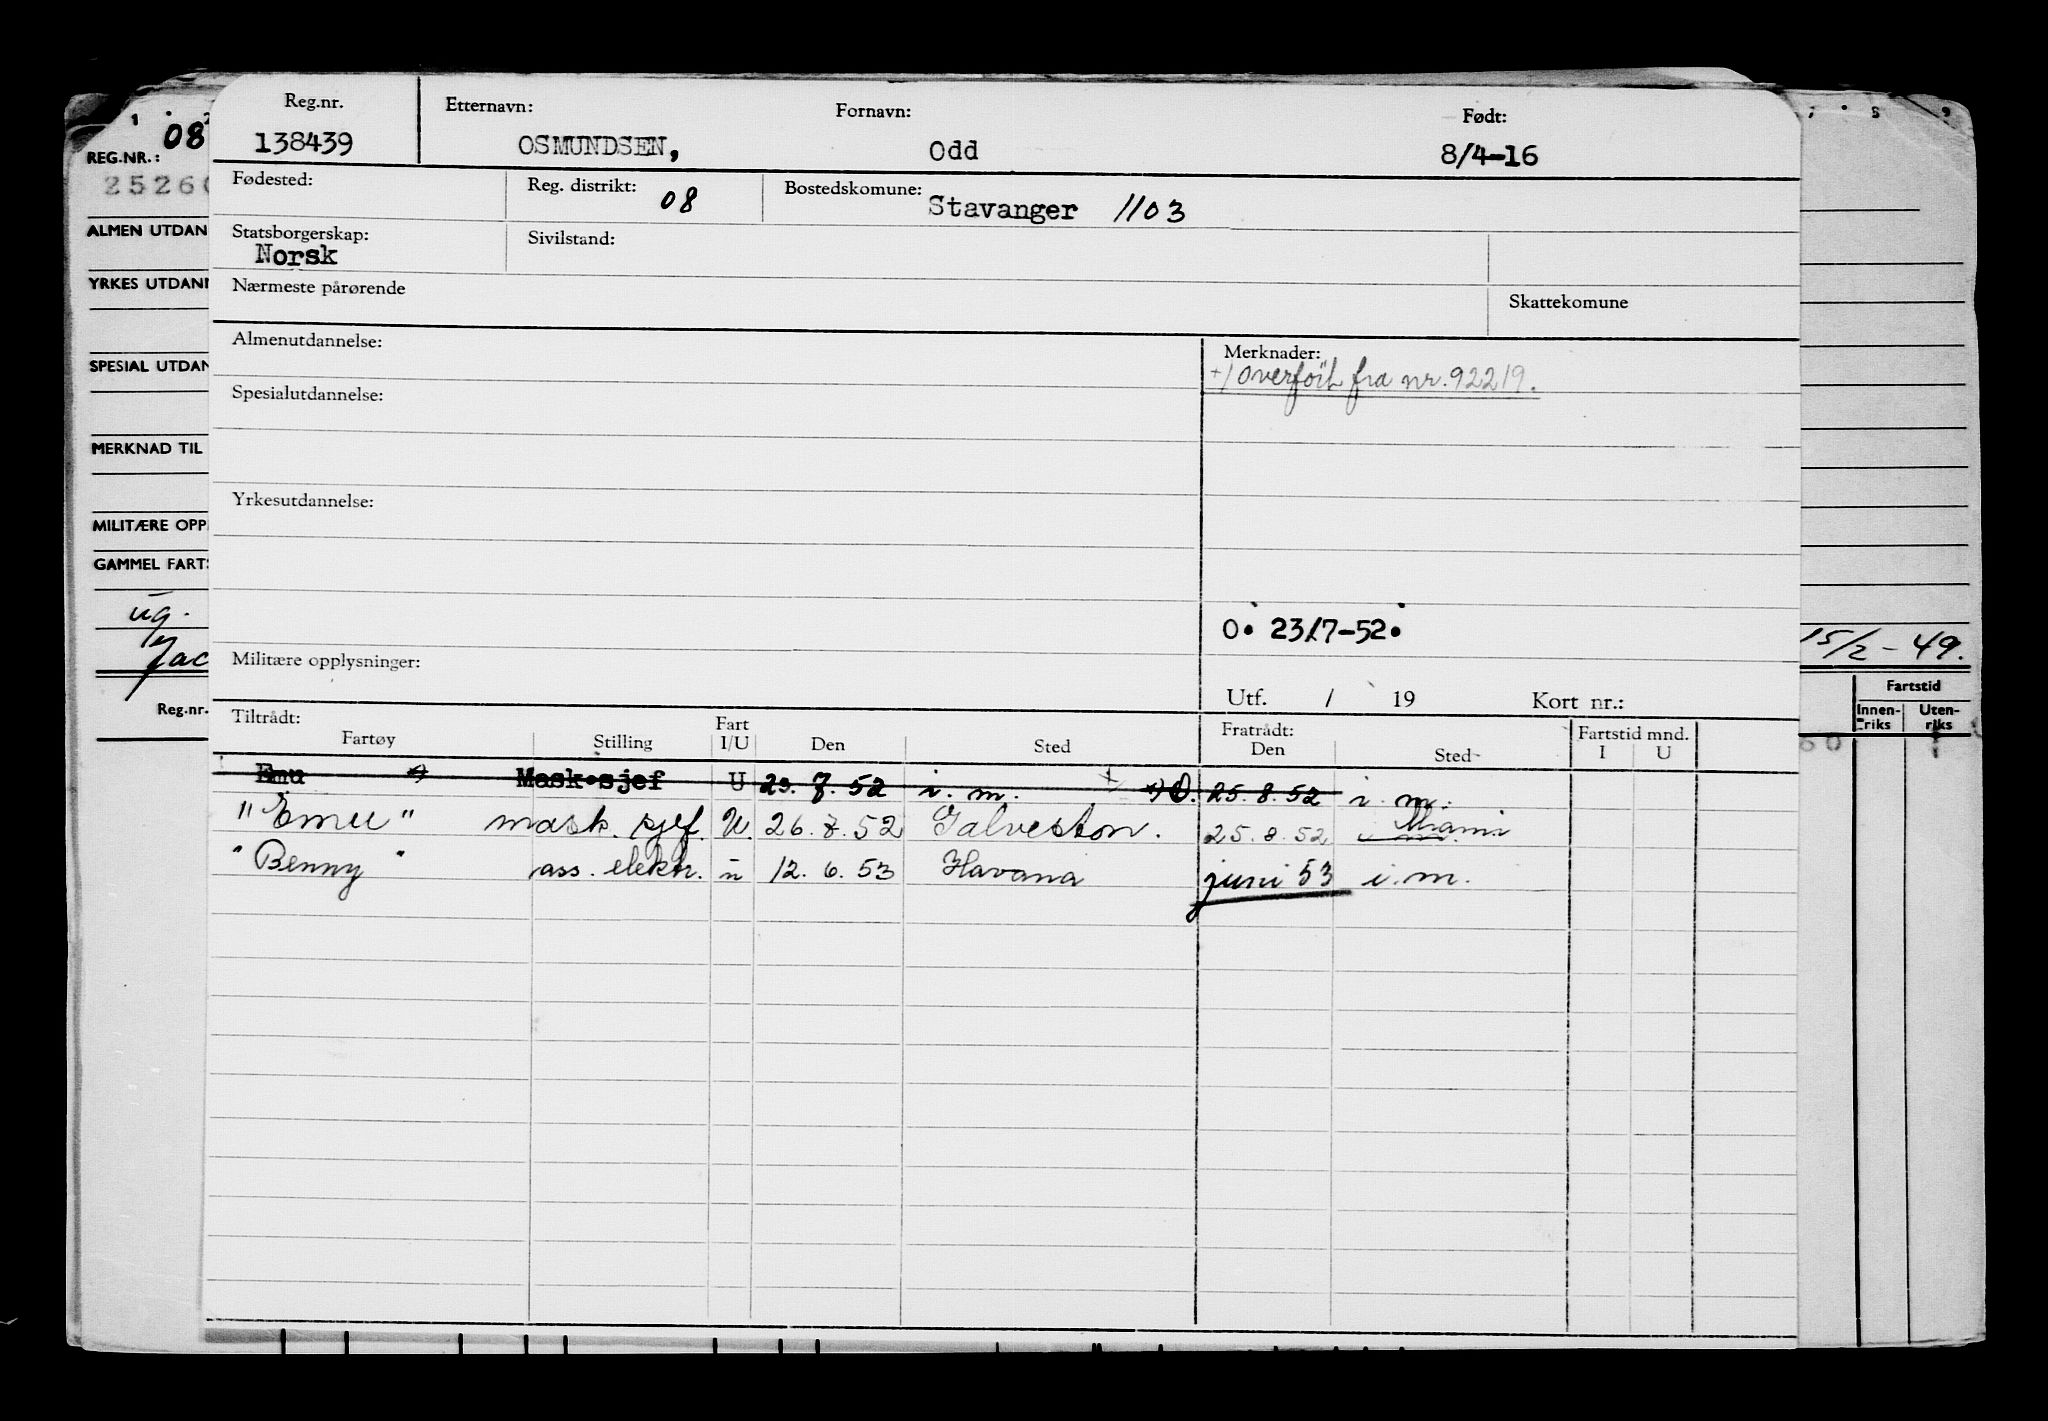 Reg.nr. Etternavn: Fornavn: Født:
138439 OSMUNDSEN, Odd 8/4-16
Fødested: Reg. distrikt: 08 Bostedskomune: Stavanger 1103
Statsborgerskap: Norsk Sivilstand:
Nærmeste pårørende Skattekomune
Almenutdannelse: Merknader:
+) Overført fra nr. 92219.
Spesialutdannelse:
Yrkesutdannelse:
O. 23/7-52.
Militære opplysninger:
Utf. / 19 Kort nr.:
Tiltrådt: Fratrådt: Fartstid mnd.
Fartøy Stilling Fart I/U Den Sted Den Sted I U
Emu Mask.sjef U 23. 7. 52 i. m. 25. 8. 52 i. m.
"Emu" mask. sjef. U. 26. 7. 52 Galveston. 25. 8. 52 Miami
"Benny" ass. elektr. u 12. 6. 53 Havana juni 53 i. m.
1 08
REG.NR.:
2526
ALMEN UTDAN
YRKES UTDAN
SPESIAL UTDAN
MERKNAD TIL
MILITÆRE OPP
GAMMEL FARTS
ug.
Jac
Reg.nr.
8 9
15/2-49.
Fartstid
Innen-riks Uten-riks